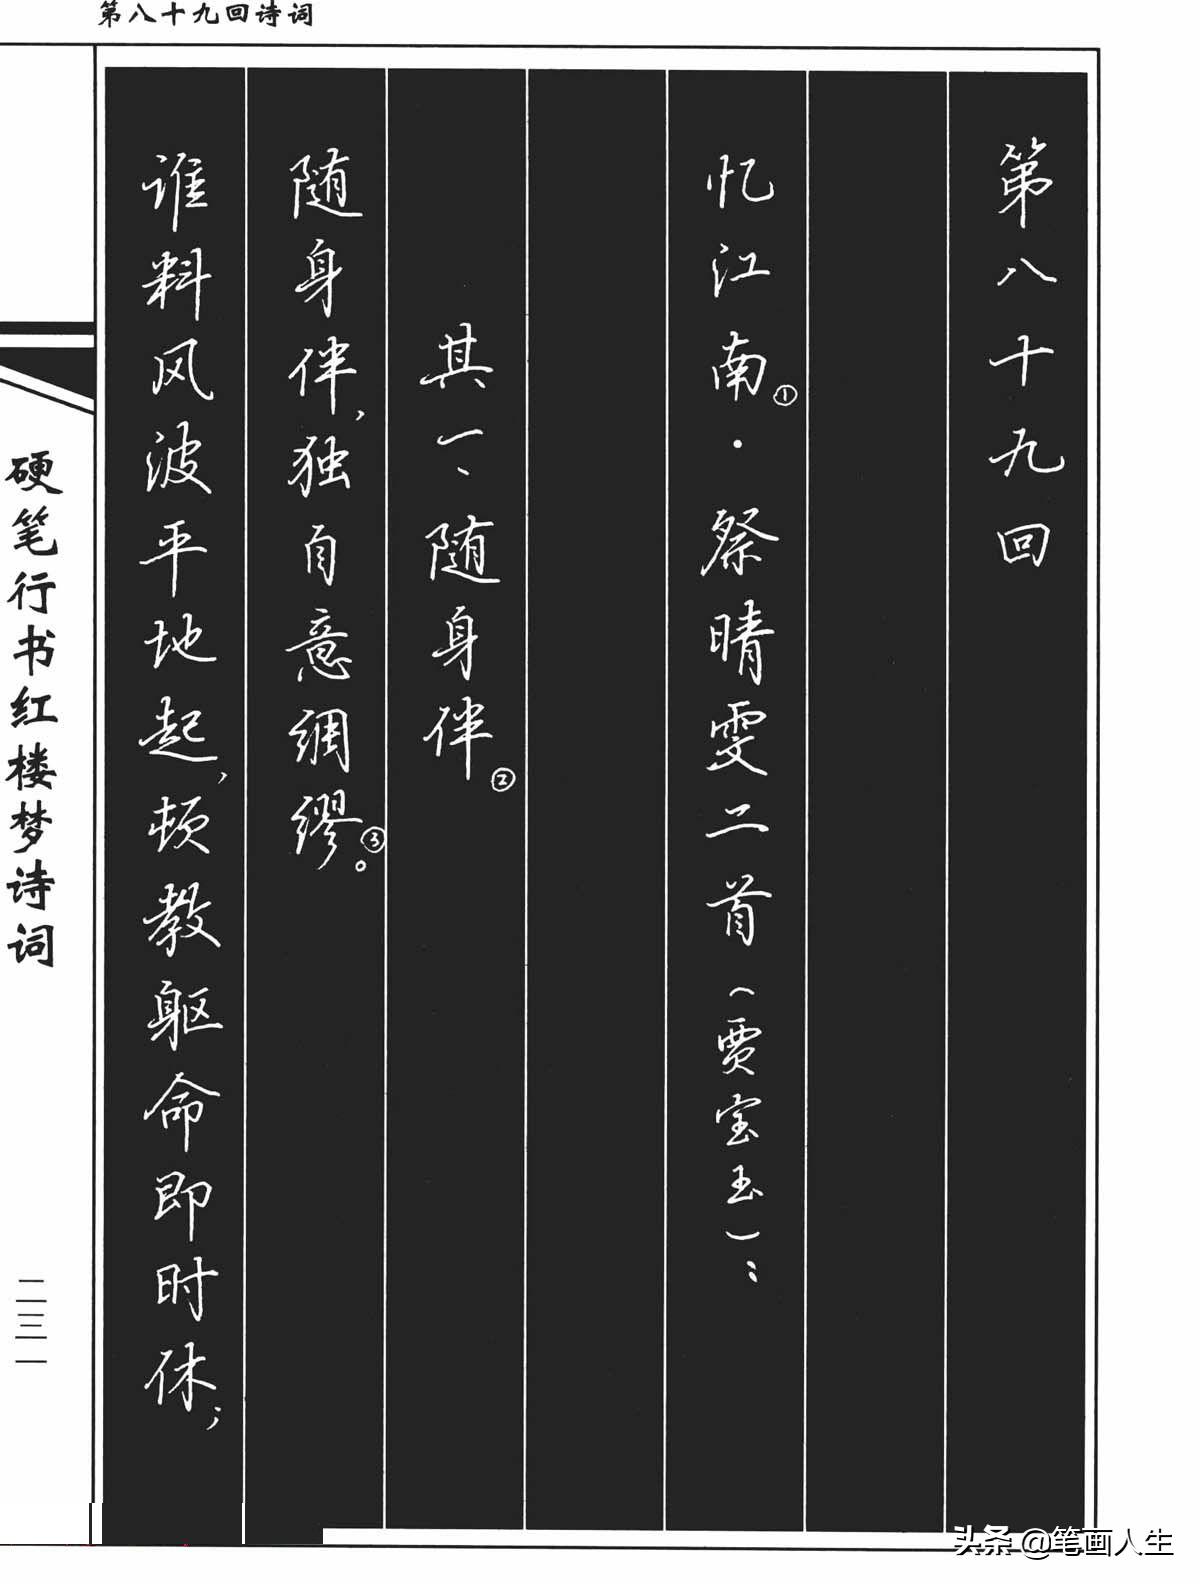 第八十九回诗词
第八十九回
忆江南①·祭晴雯二首（贾宝玉）：
其一、随身伴②
随身伴，独自意绸缪③。
谁料风波平地起，顿教躯命即时休；
硬笔行书红楼梦诗词
二三一
头条 @笔画人生